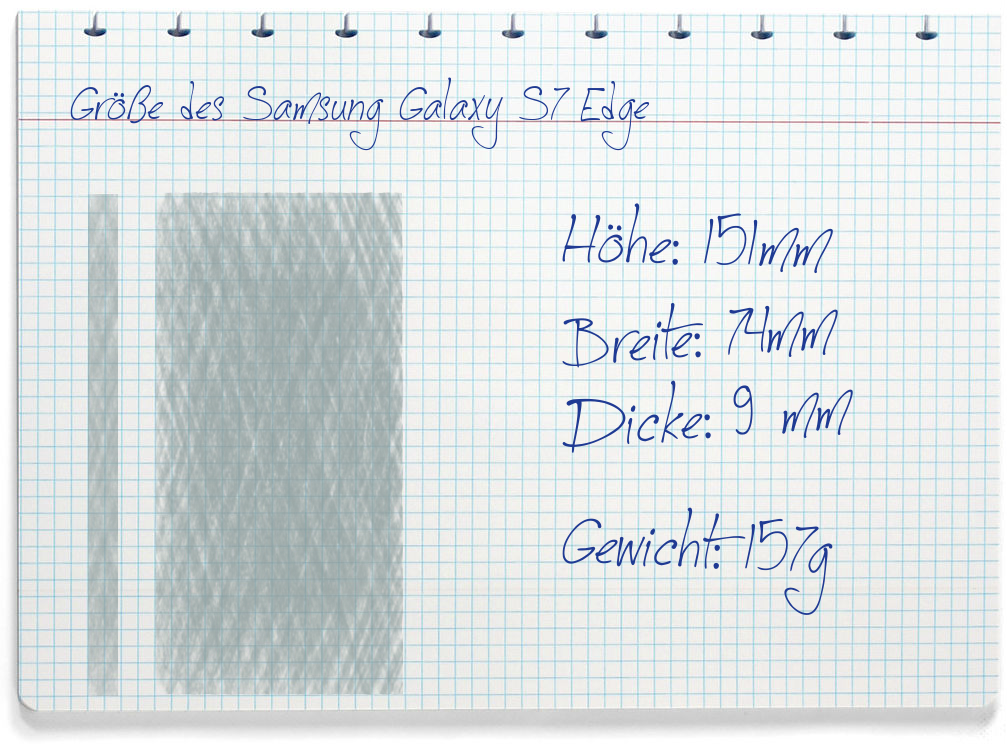 Größe des Samsung Galaxy S7 Edge
Höhe: 151mm
Breite: 74mm
Dicke: 9 mm
Gewicht: 157g